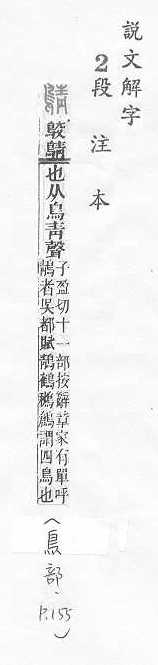 說文解字
2段注本
鶄
鵁鶄也从鳥青聲
子盈切十一部按辭章家有單呼
鶄者吳都賦鶄鶴鶖鶬謂四鳥也
(鳥部、P.155)